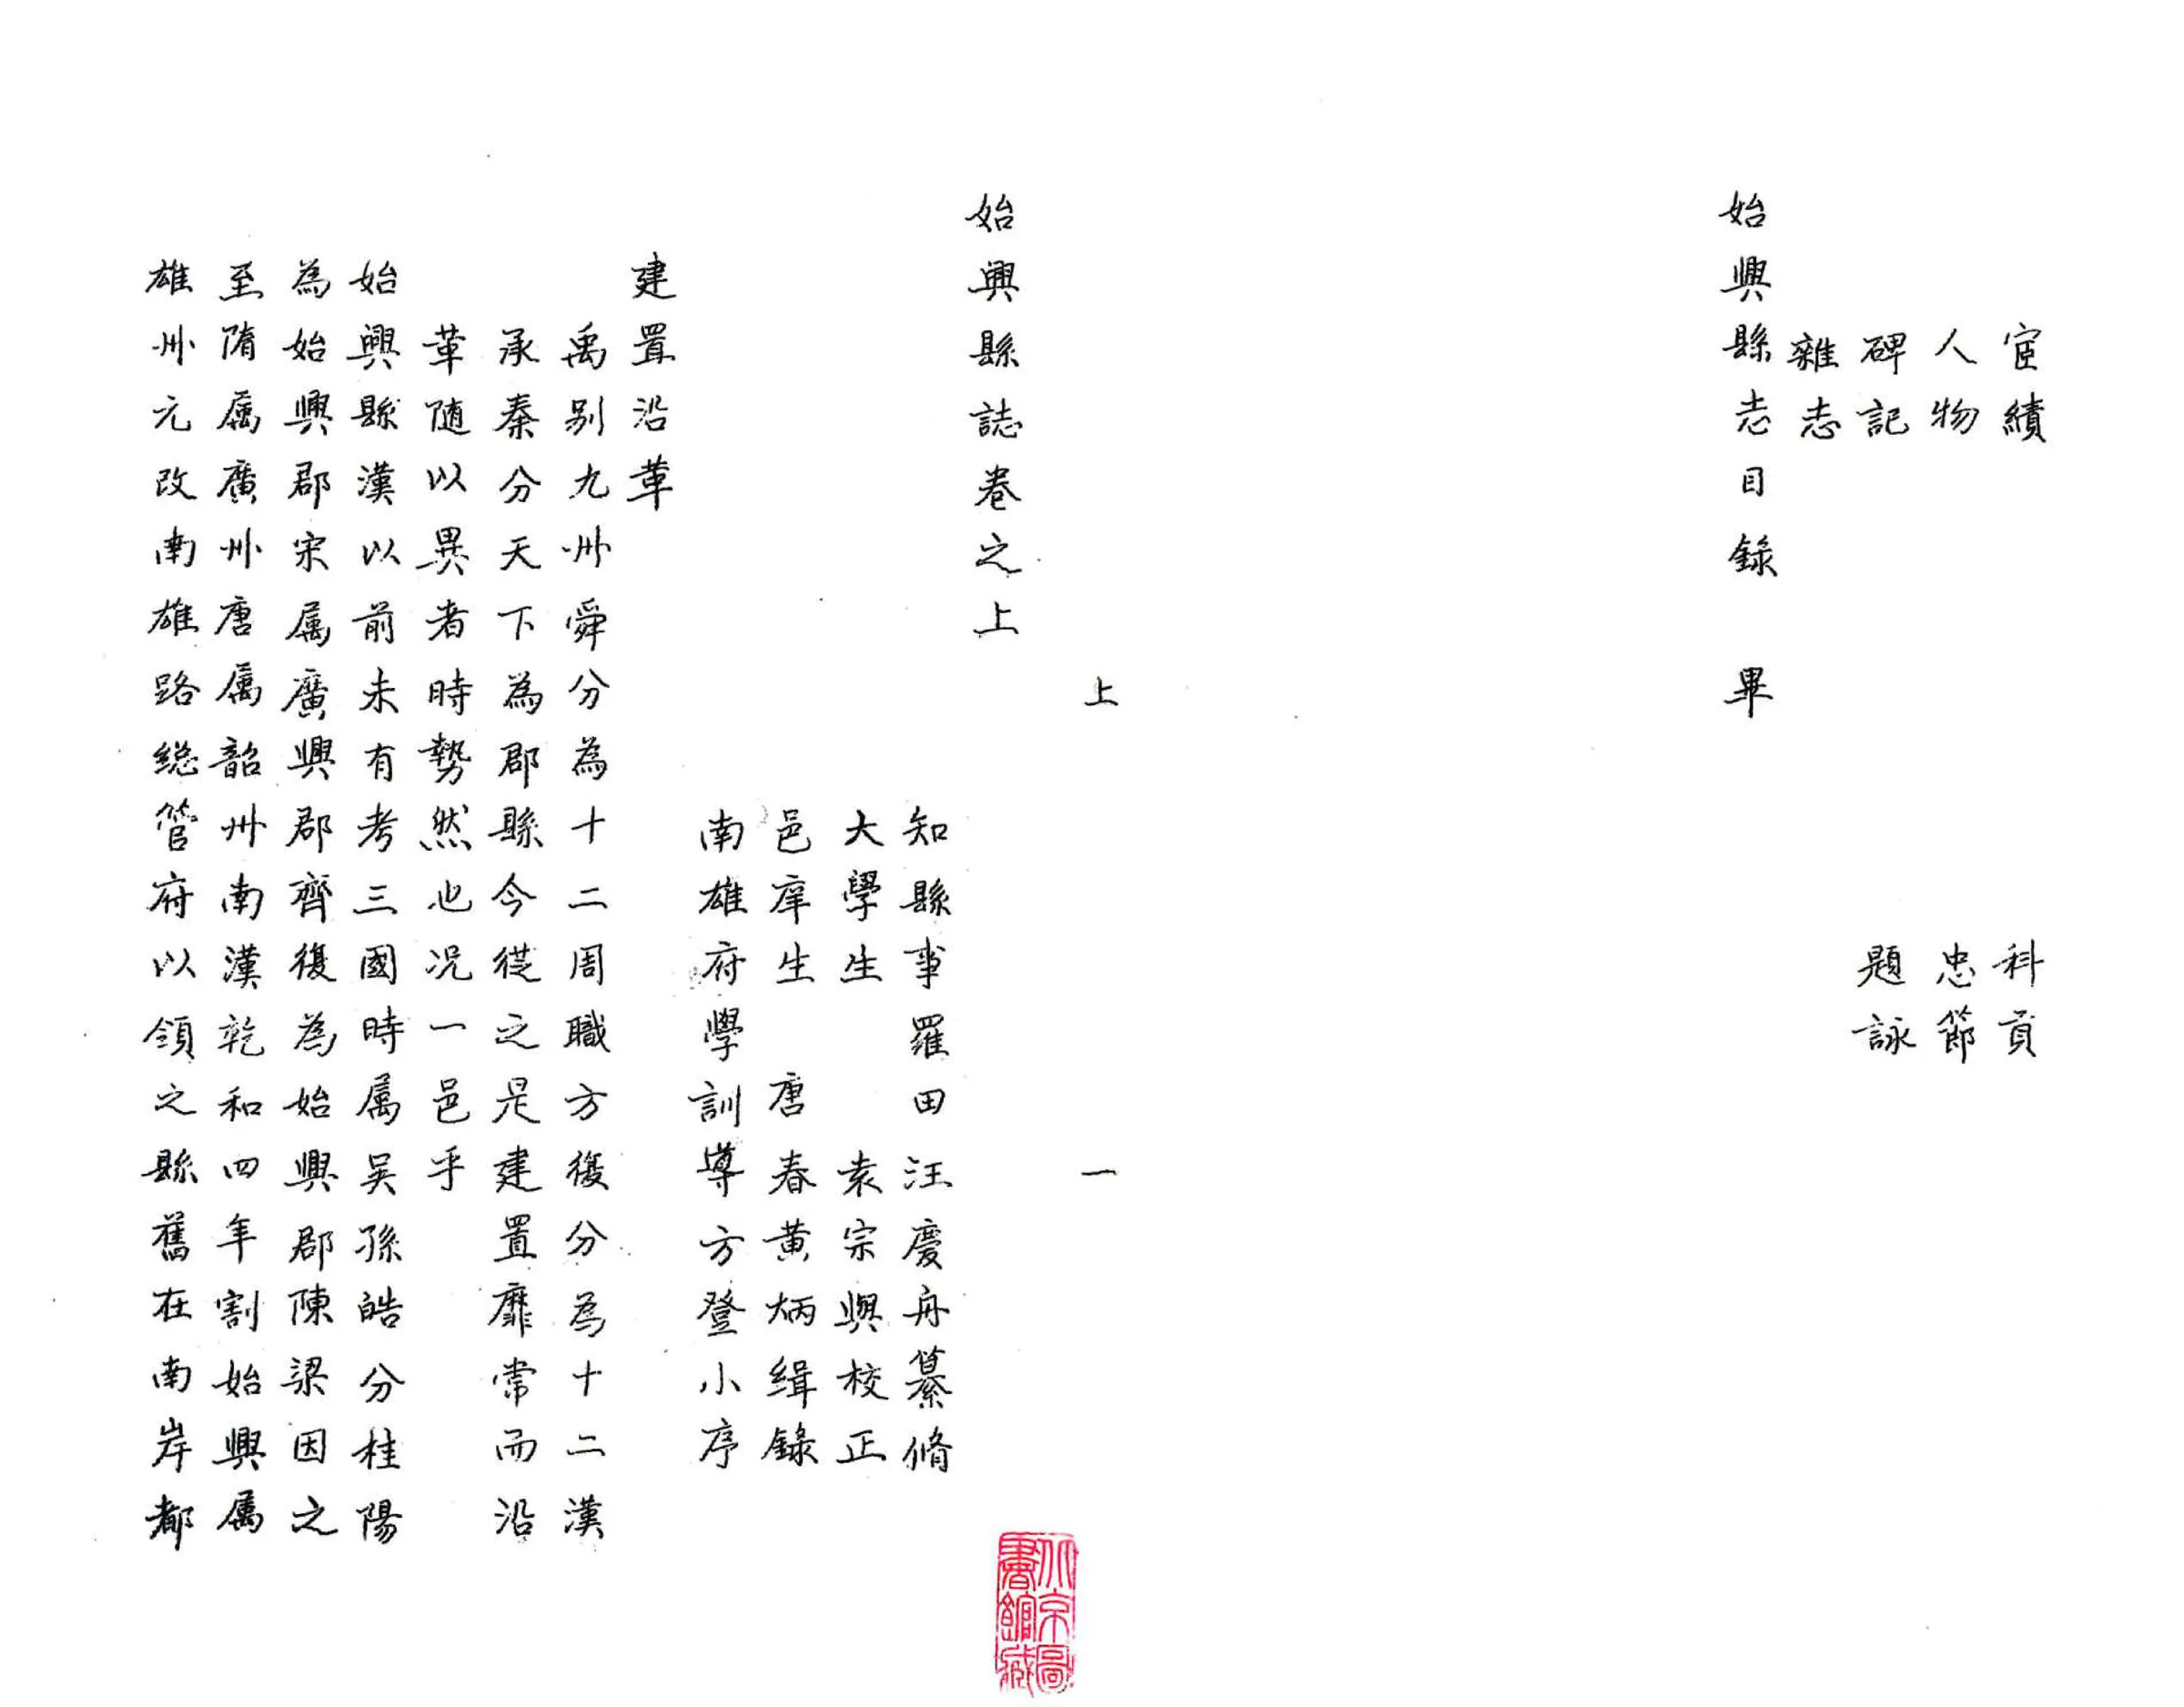 宦績　科貢
人物　忠節
碑記　題詠
雜志
始興縣志目錄　畢
上　一
始興縣誌卷之上
知縣事羅田汪慶舟纂脩
大學生　袁宗與校正
邑庠生　唐春黄炳緝錄
南雄府學訓導方登小序
建置沿革
禹别九州舜分為十二周職方復分為十二漢
承秦分天下為郡縣今從之是建置靡常而沿
革随以異者時勢然也况一邑乎
始興縣漢以前未有考三國時属吴孫皓分桂陽
為始興郡宋属廣興郡齊復為始興郡陳梁因之
至隋属廣州唐属韶州南漢乾和四年割始興属
雄州元改南雄路総管府以領之縣舊在南岸都
北京圖書館藏